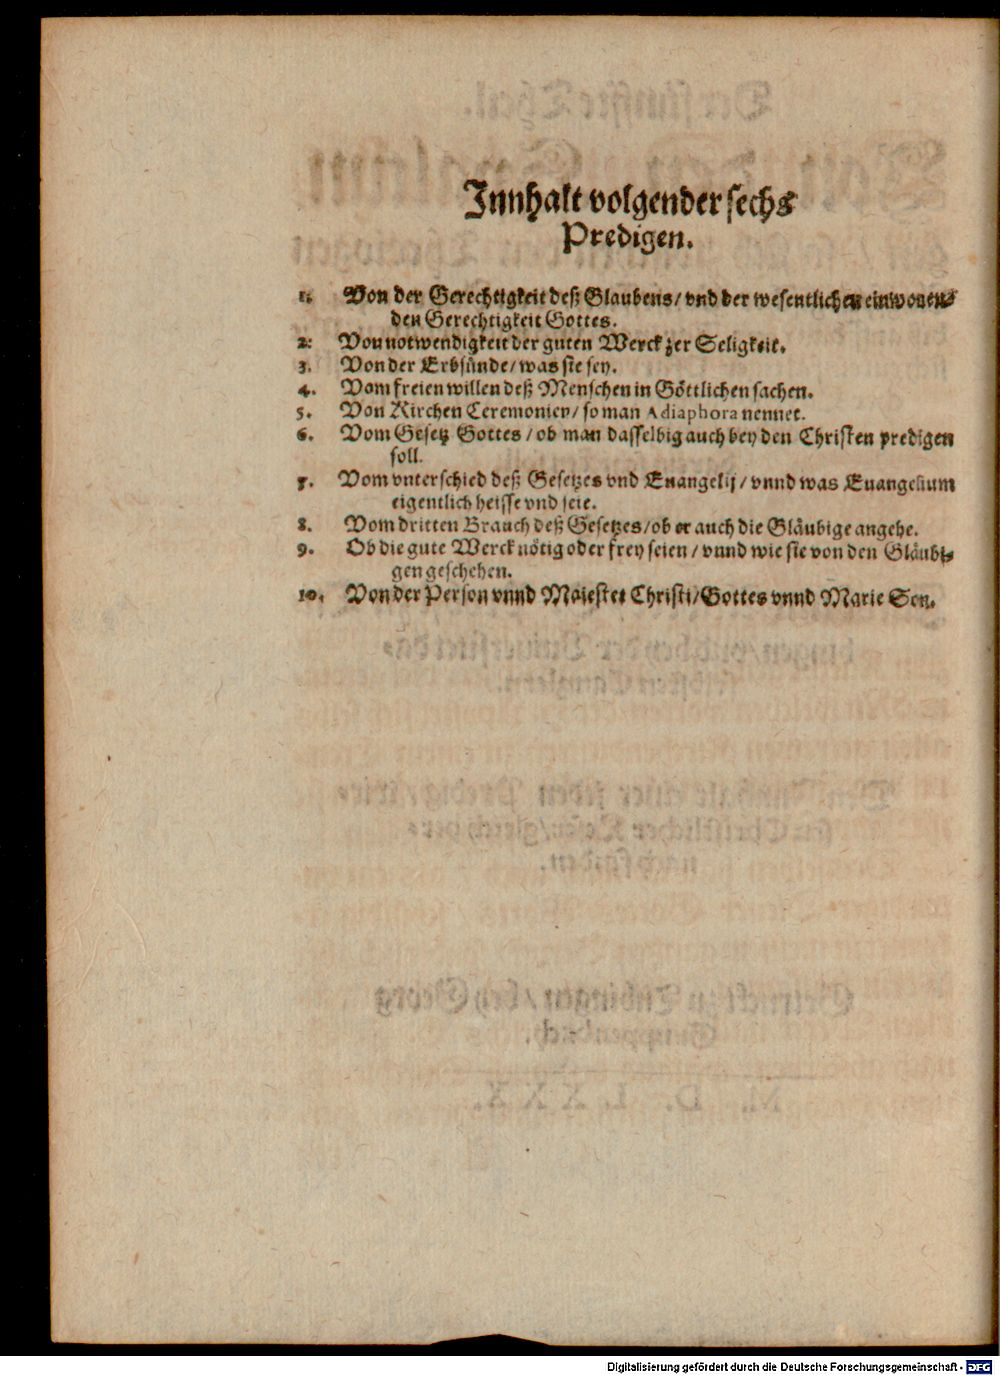 Innhalt volgender sechs
Predigen.
1. Von der Gerechtigkeit deß Glaubens/ vnd der wesentlichen einwonen-
den Gerechtigkeit Gottes.
2. Von notwendigkeit der guten Werck zer Seligkeit.
3. Von der Erbsünde/ was sie sey.
4. Vom freien willen deß Menschen in Göttlichen sachen.
5. Von Kirchen Ceremonien/ so man Adiaphora nennet.
6. Vom Gesetz Gottes/ ob man dasselbig auch bey den Christen predigen
soll.
7. Vom vnterschied deß Gesetzes vnd Euangelij/ vnnd was Euangelium
eigentlich heisse vnd seie.
8. Vom dritten Brauch deß Gesetzes/ ob er auch die Gläubige angehe.
9. Ob die gute Werck nötig oder frey seien/ vnnd wie sie von den Gläubi-
gen geschehen.
10. Von der Person vnnd Maiestet Christi/ Gottes vnnd Marie Son.
Digitalisierung gefördert durch die Deutsche Forschungsgemeinschaft - DFG